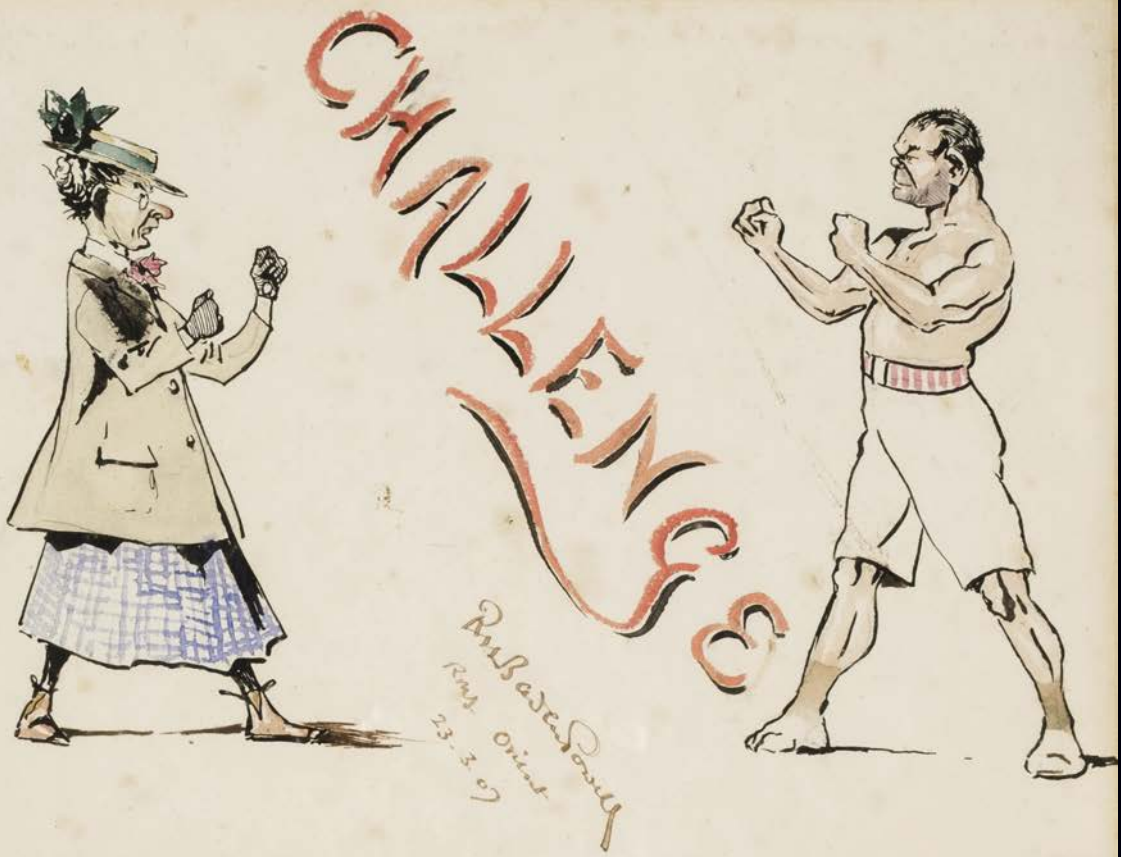 CHALLENGE
RSS Baden Powell
RMS Orient
23.3.07